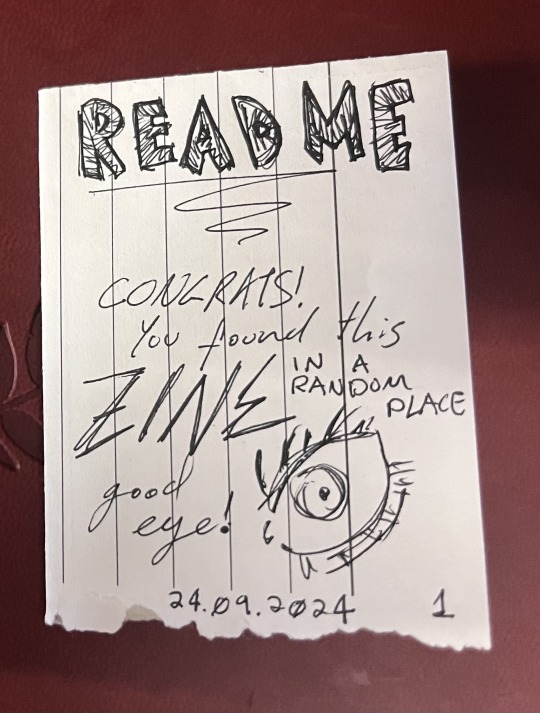 READ ME
CONGRATS!
You found this
ZINE IN A
RANDOM
PLACE
good
eye!
24.09.2024 1